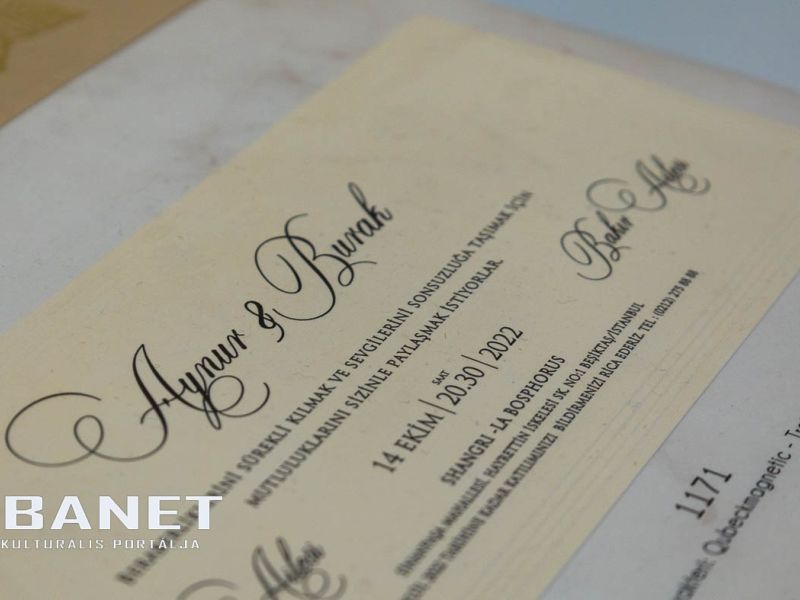 Aynur & Burak
SÜREKLİ KILMAK VE SEVGİLERİNİ SONSUZLUĞA TAŞIMAK İÇİN
MUTLULUKLARINI SİZİNLE PAYLAŞMAK İSTİYORLAR.
SAAT
14 EKİM | 20.30 | 2022
SHANGRI -LA BOSPHORUS
SİNANPAŞA MAHALLESİ, HAYRETTİN İSKELESİ SK. NO:1 BEŞİKTAŞ/İSTANBUL
TARİHİNE KADAR KATILIMINIZI BİLDİRMENİZİ RİCA EDERİZ. TEL : (0212) 275 88 88
1171
Qubeckmagnetic -
BANET
KULTURALIS PORTÁLJA